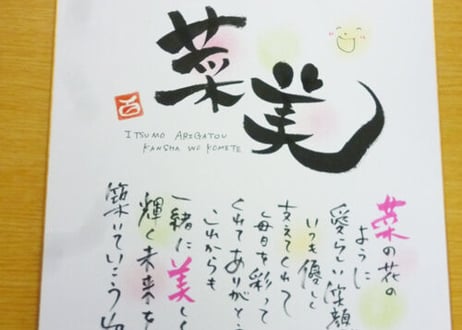 菜美
ITSUMO ARIGATOU
KANSHA WO KOMETE
菜の花の
ように
愛らしい笑顔
いつも優しく
支えてくれて
毎日を彩って
くれてありがとう
これからも
一緒に美しく
輝く未来を
築いていこうね